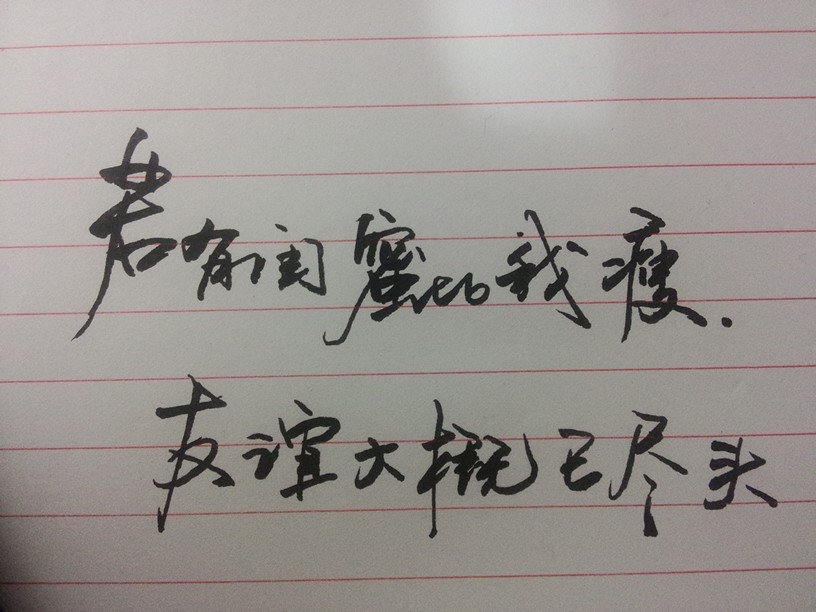 若有闺蜜比我瘦.
友谊大概已尽头